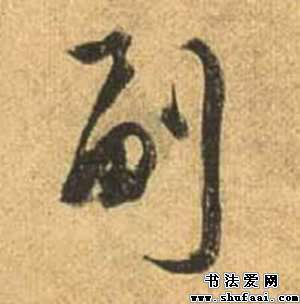 副
书法爱网
www.shufaai.com